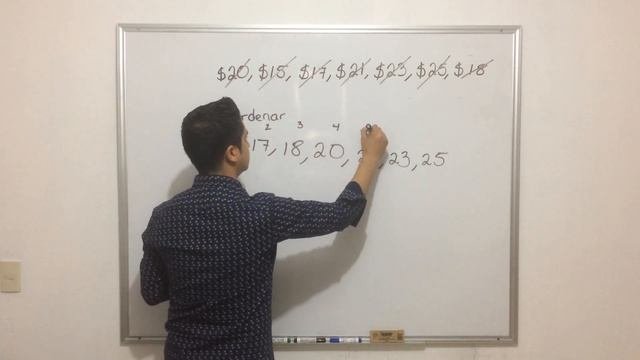 $20, $15, $17, $21, $23, $25, $18
rdenar
2 3 4
17, 18, 20, 2 , 23, 25